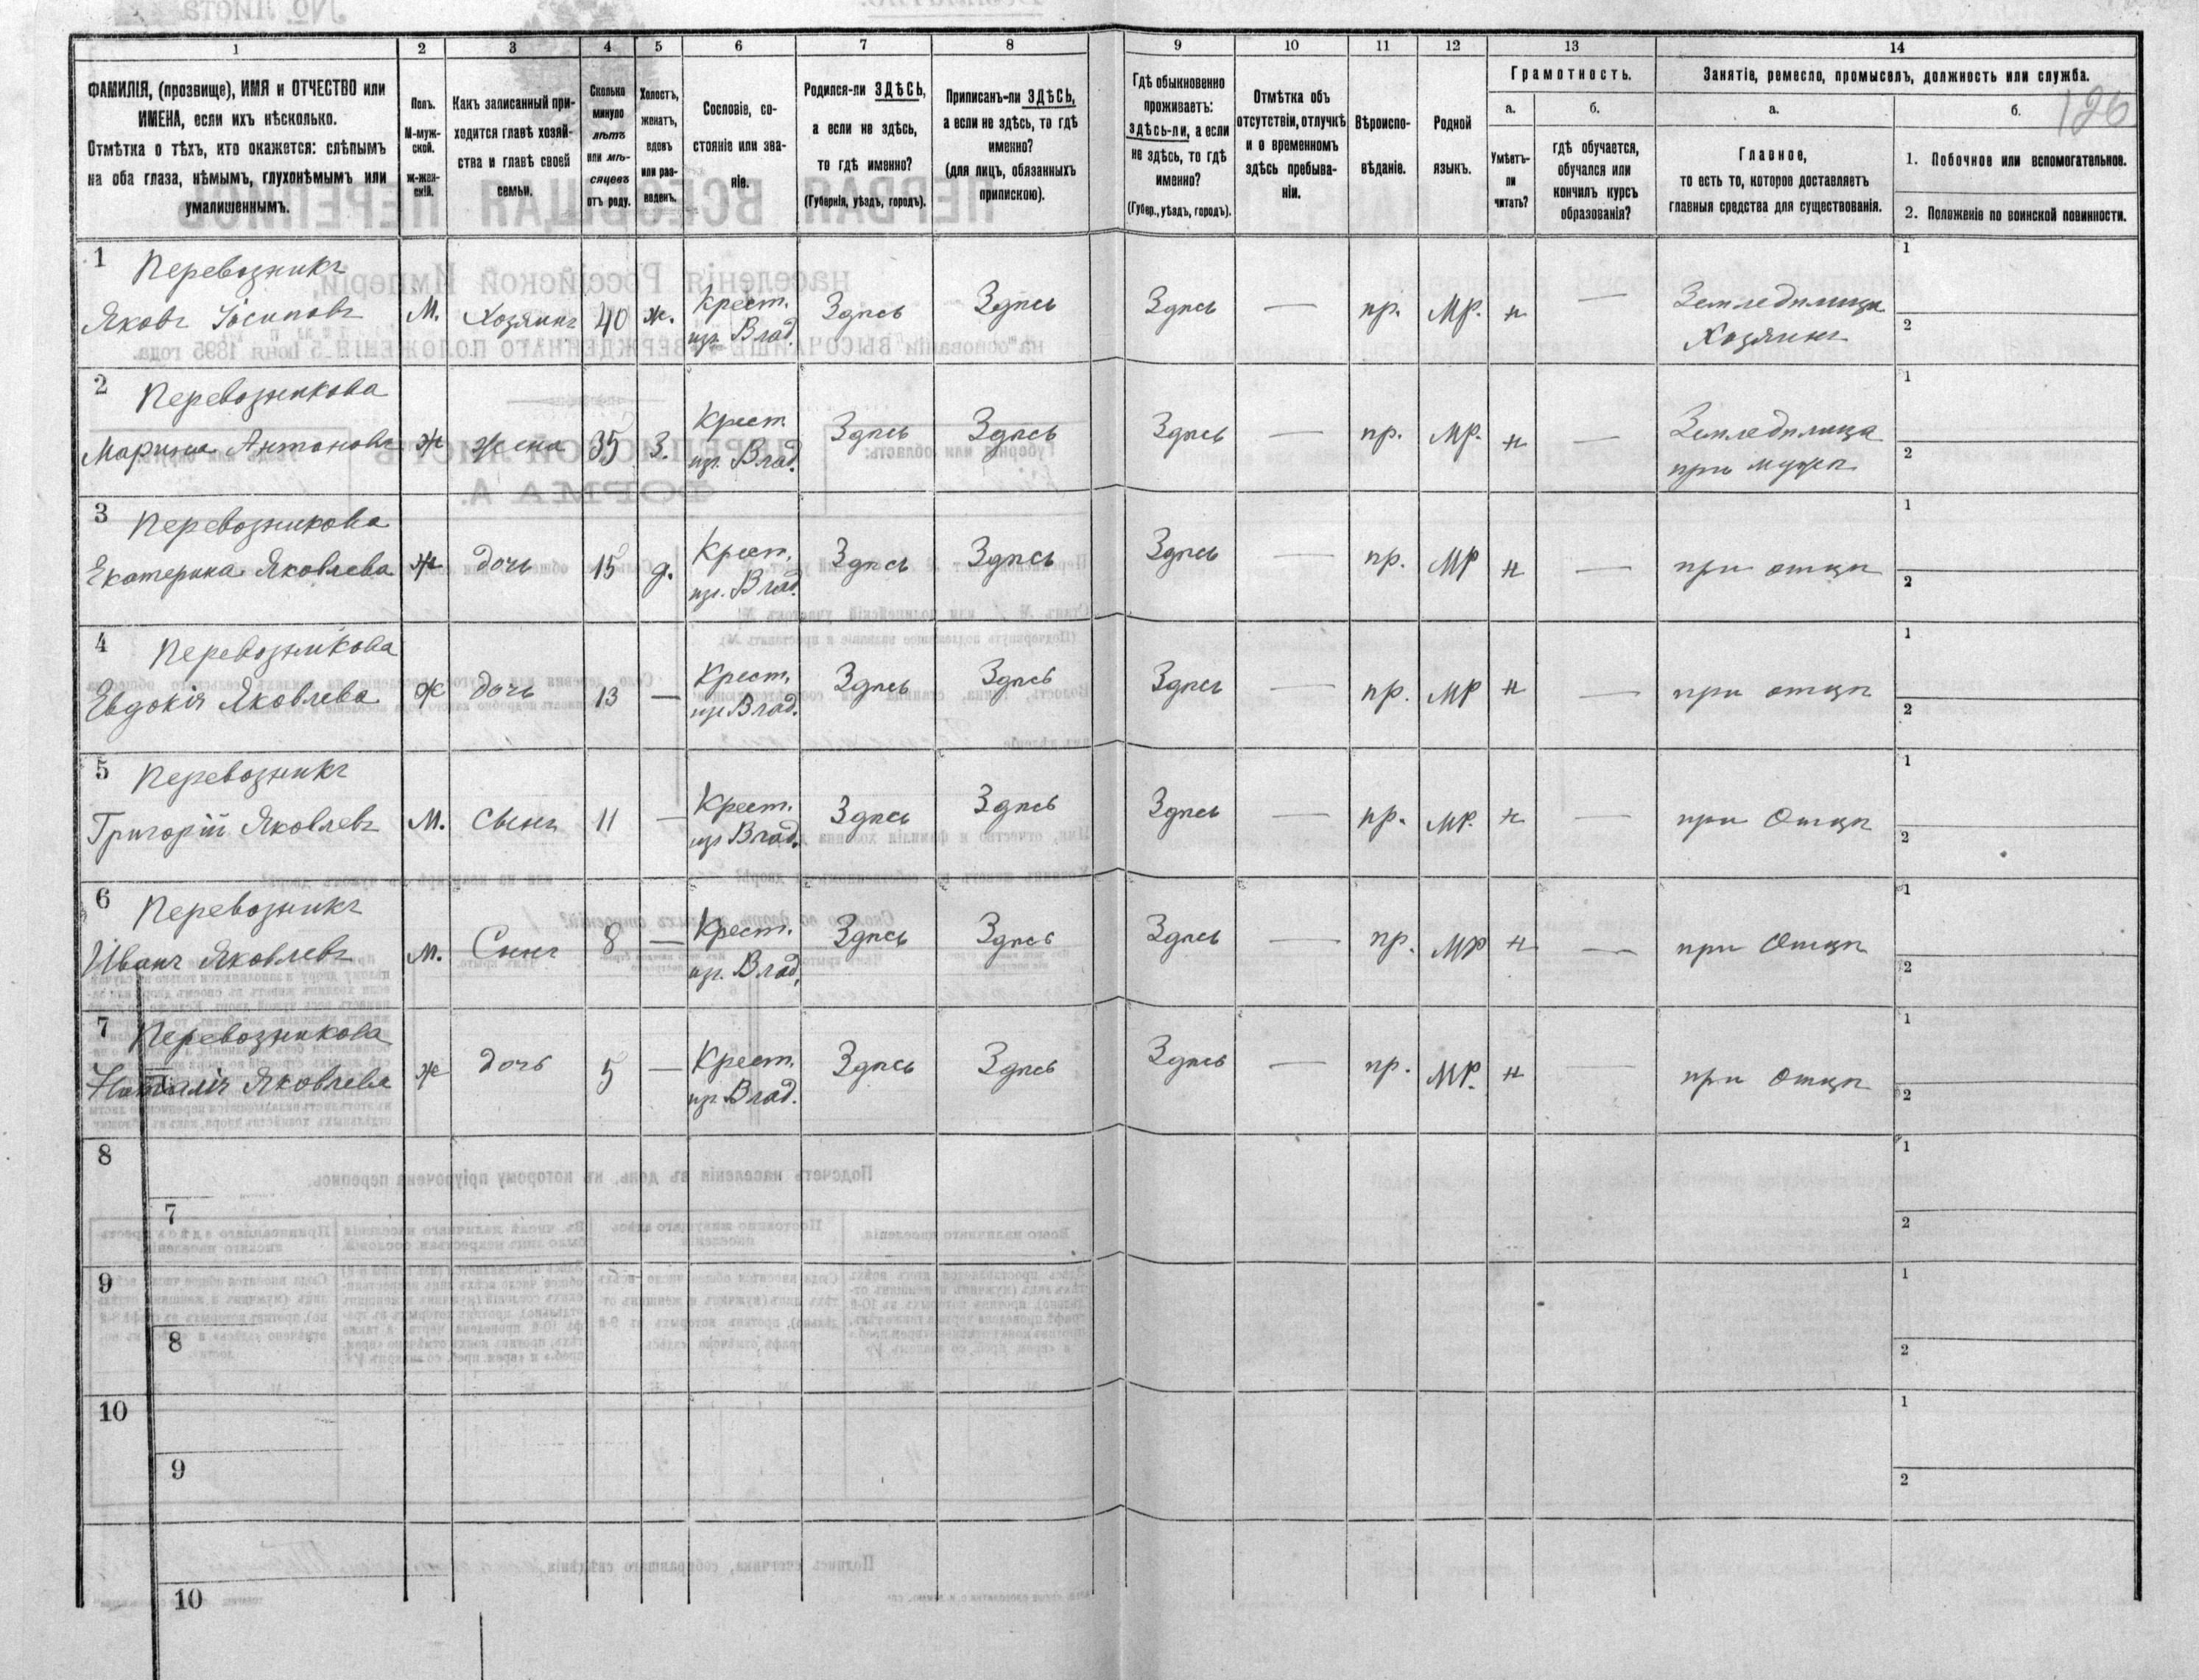 1 2 3 4 5 6 7 8 9 10 11 12 13 14
ФАМИЛІЯ, (прозвище), ИМЯ и ОТЧЕСТВО или
ИМЕНА, если ихъ нѣсколько.
Отмѣтка о тѣхъ, кто окажется: слѣпымъ
на оба глаза, нѣмымъ, глухонѣмымъ или
умалишеннымъ.
Полъ.
М-муж-
ской.
ж-жен-
скій.
Какъ записанный при-
ходится главѣ хозяй-
ства и главѣ своей
семьи.
Сколько
минуло
лѣтъ
или мѣ-
сяцевъ
отъ роду.
Холостъ,
женатъ,
вдовъ
или раз-
веденъ.
Сословіе, со-
стояніе или зва-
ніе.
Родился-ли ЗДѢСЬ,
а если не здѣсь,
то гдѣ именно?
(Губернія, уѣздъ, городъ).
Приписанъ-ли ЗДѢСЬ,
а если не здѣсь, то гдѣ
именно?
(для лицъ, обязанныхъ
припискою).
Гдѣ обыкновенно
проживаетъ:
здѣсь-ли, а если
не здѣсь, то гдѣ
именно?
(Губер., уѣздъ, городъ).
Отмѣтка объ
отсутствіи, отлучкѣ
и о временномъ
здѣсь пребыва-
ніи.
Вѣроиспо-
вѣданіе.
Родной
языкъ.
Грамотность.
а.
Умѣетъ-
ли
читать?
б.
гдѣ обучается,
обучался или
кончилъ курсъ
образованія?
Занятіе, ремесло, промыселъ, должность или служба.
а.
Главное,
то есть то, которое доставляетъ
главныя средства для существованія.
б.
126
1. Побочное или вспомогательное.
2. Положеніе по воинской повинности.
1 Перевозникъ
Яковъ Іосиповъ М. Хозяинъ 40 ж. Крест. Здѣсь Здѣсь Здѣсь — пр. Мр. н — Земледѣлица
изъ Влад. Хозяинъ
1
2
2 Перевозникова
Марина Антонова ж жена 35 З. Крест Здѣсь Здѣсь Здѣсь — пр. Мр. н — Земледѣлица
изъ Влад. при мужѣ
1
2
3 Перевозникова
Екатерина Яковлева ж дочь 15 д. Крест. Здѣсь Здѣсь Здѣсь — пр. МР н — при отцѣ
из. Влад.
1
2
4 Перевозникова
Евдокія Яковлева ж дочь 13 — Крест. Здѣсь Здѣсь Здѣсь — пр. МР н — при отцѣ
из Влад.
1
2
5 Перевозникъ
Григорій Яковлевъ М. сынъ 11 — Крест. Здѣсь Здѣсь Здѣсь — пр. МР. н — при Отцѣ
из Влад.
1
2
6 Перевозникъ
Иванъ Яковлевъ М. Сынъ 8 — Крест. Здѣсь Здѣсь Здѣсь — пр. МР н — при Отцѣ
из. Влад.
1
2
7 Перевозникова
Наталія Яковлева ж дочь 5 — Крест. Здѣсь Здѣсь Здѣсь — пр. МР. н — при Отцѣ
из. Влад.
1
2
8
1
7
2
9
1
8
2
10
1
9
2
10